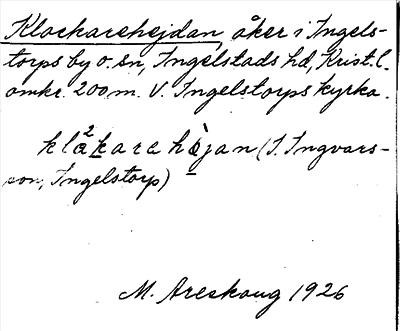 Klockarehejdan, åker i Ingels-
torps by o. sn, Ingelstads hd, Krist. l.
omkr. 200 m. V. Ingelstorps kyrka.
kla²kare hòjan (I. Ingvars-
son, Ingelstorp)
M. Areskoug 1926